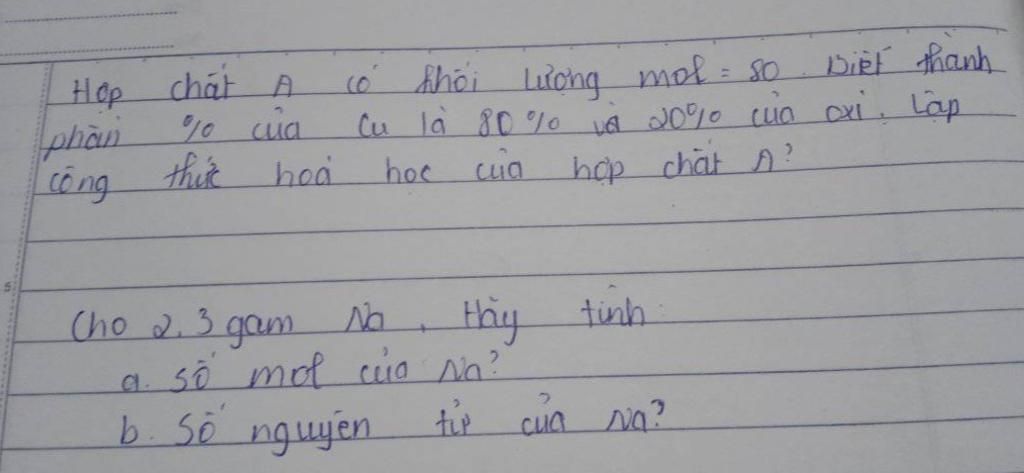 Hợp chất A có khối lượng mol = 80. Biết thành
phần % của Cu là 80% và 20% của oxi. Lập
công thức hoá học của hợp chất A?
Cho 2,3 gam Na, Hãy tính:
a. Số mol của Na?
b. Số nguyên tử của Na?